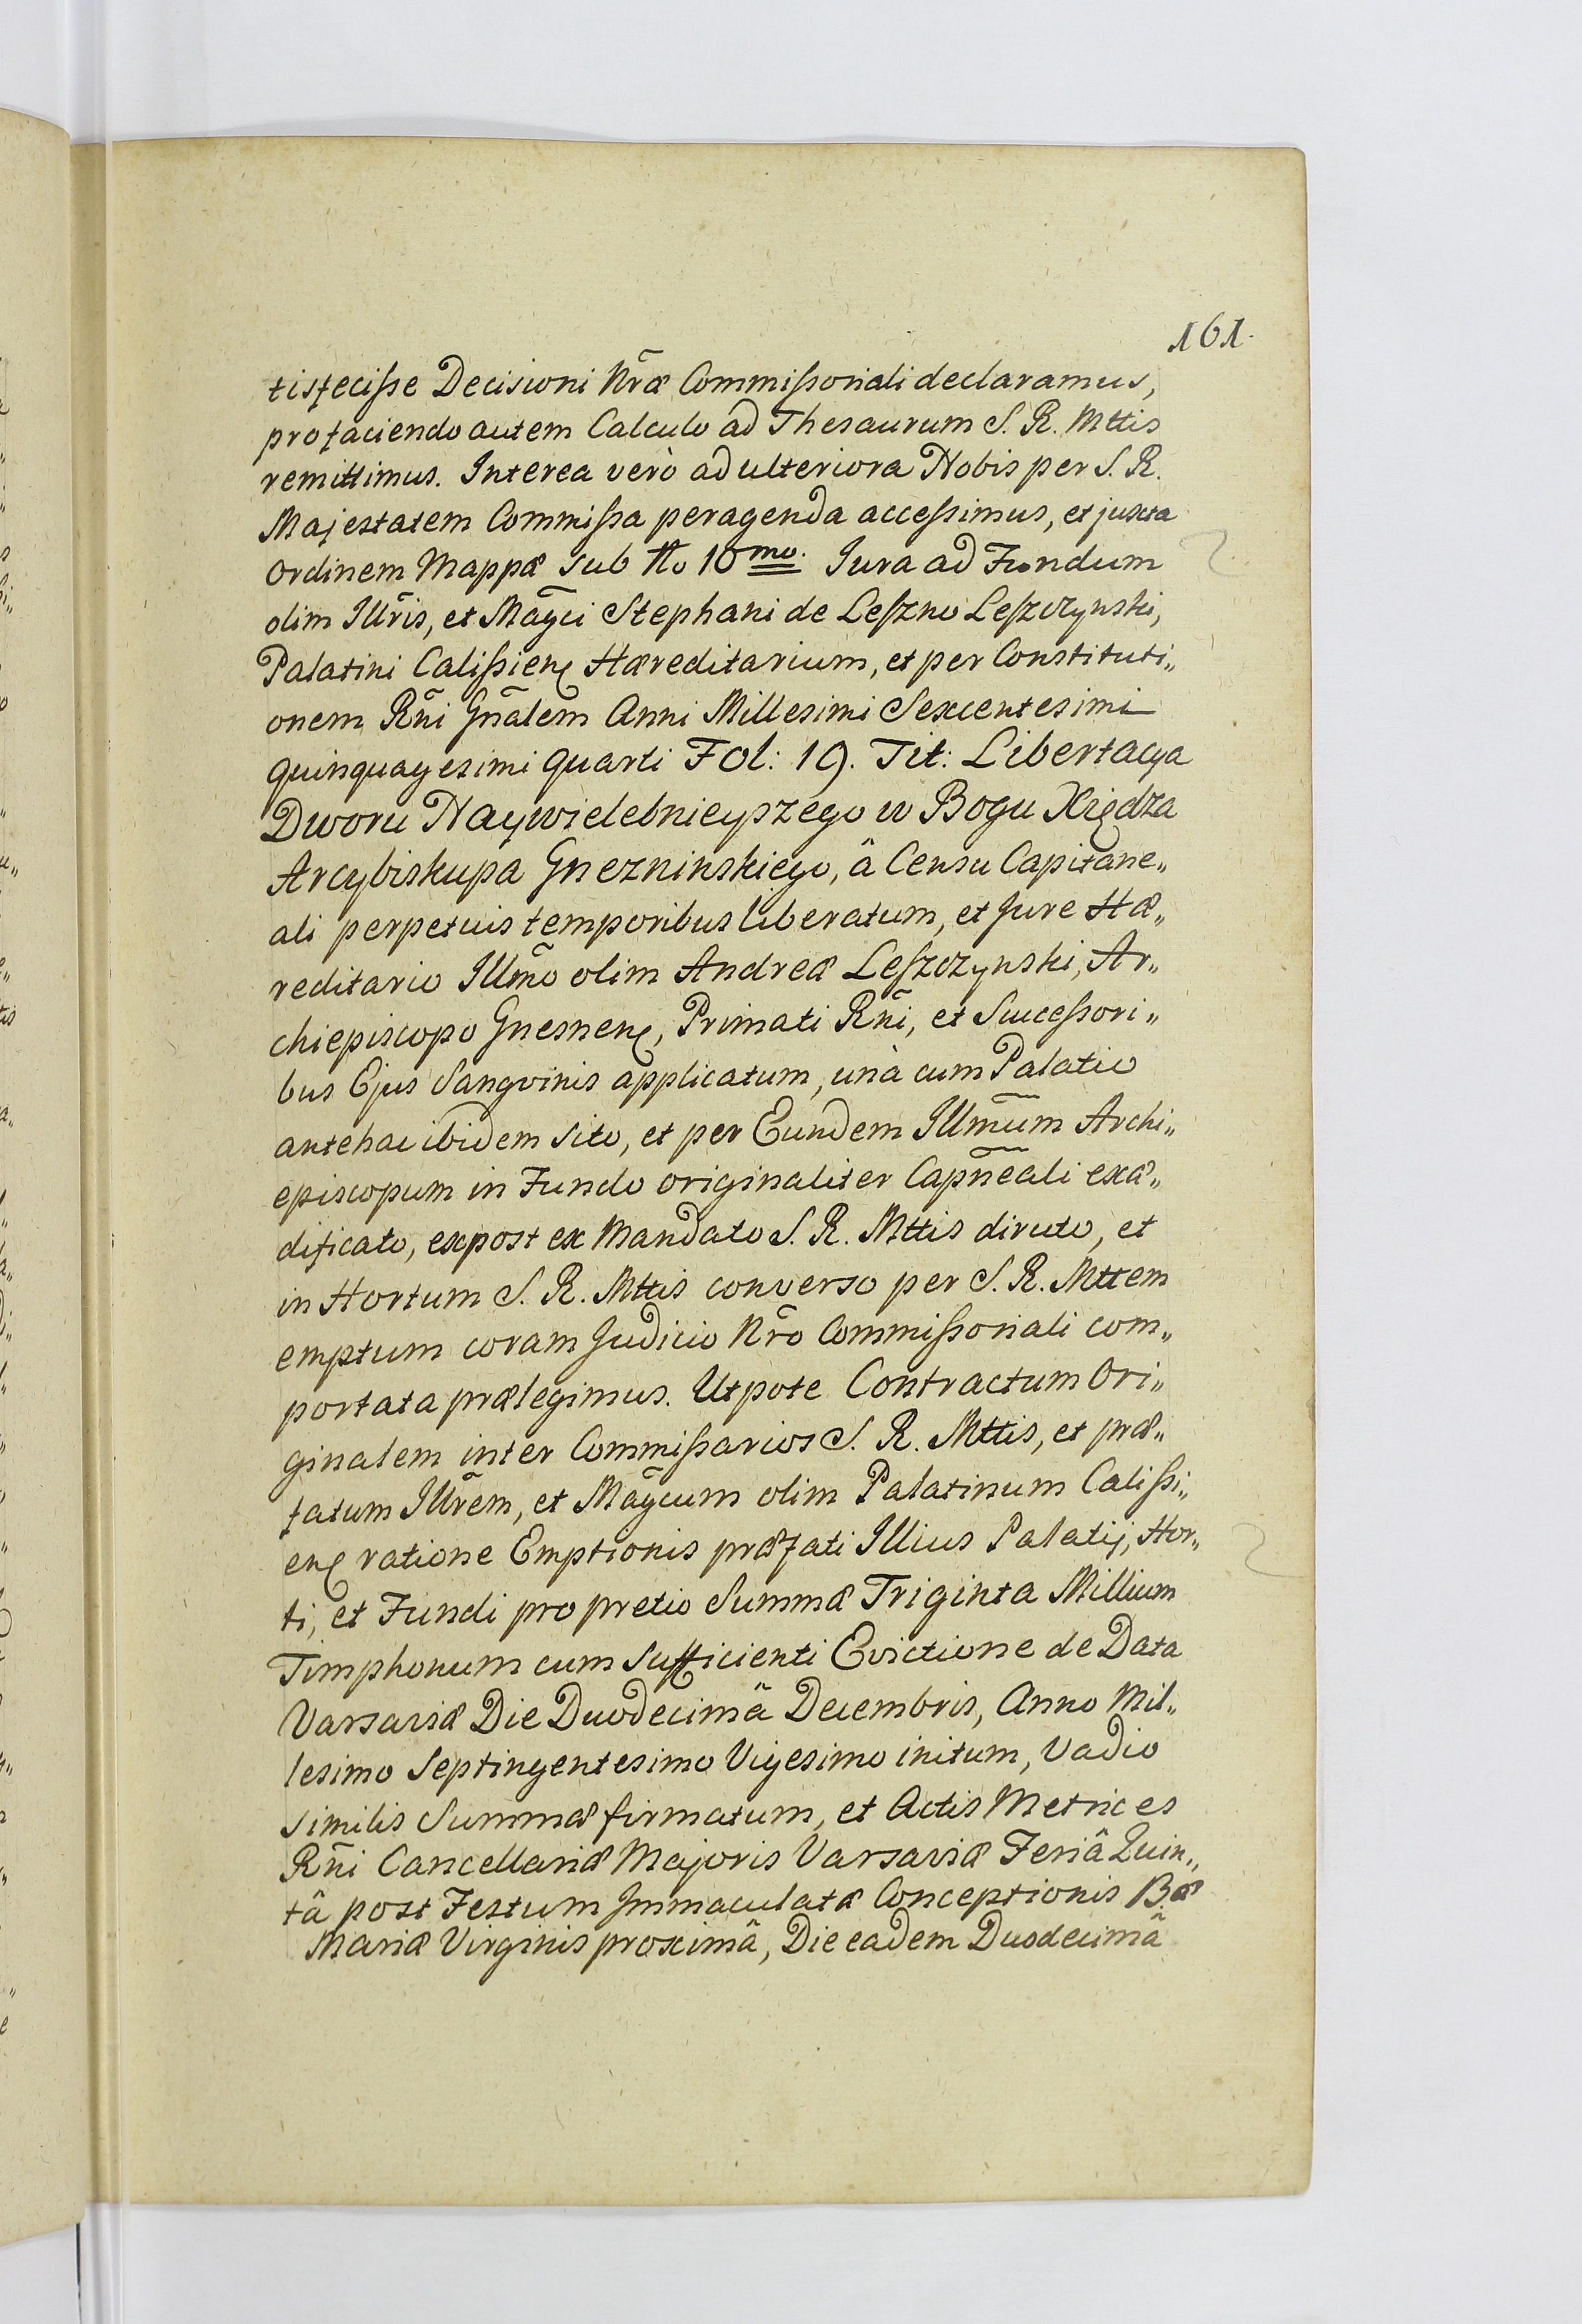 161.
tisfecisse Decisioni Nr̃æ Commissoriali declaramus,
pro faciendo autem Calculo ad Thesaurum S. R. Mttis
remittimus. Interea verò ad ulteriora Nobis per S. R.
Majestatem Commissa peragenda accessimus, et juxta
Ordinem Mappæ sub No 10mo. Jura ad Fundum
olim Illr̃is, et Mag̃ci Stephani de Leszno Leszczynski,
Palatini Calissien̨ Hæreditarium, et per Constituti„
onem Rñi Gñalem Anni Millesimi Sexcentesimi
quinquagesimi quarti Fol: 19. Tit: Libertacya
Dworu Naywielebnieyszego w Bogu Xiędza
Arcybiskupa Gnezninskiego, â Censu Capitane„
ali perpetuis temporibus liberatum, et Jure Hæ„
reditario Illm̃o olim Andreæ Leszczynski, Ar„
chiepiscopo Gnesnen̨, Primati Rñi, et Successori„
bus Ejus Sangvinis applicatum, unà cum Palatio
antehac ibidem sito, et per Eundem Illm̃um Archi„
episcopum in Fundo originaliter Capñeali exæ„
dificato, expost ex Mandato S. R. Mttis diruto, et
in Hortum S. R. Mttis converso per S. R. Mttem
emptum coram Judicio Nr̃o Commissoriali com„
portata prælegimus. Utpote Contractum Ori„
ginalem inter Commissarios S. R. Mttis, et præ„
fatum Illr̃em, et Mag̃cum olim Palatinum Calissi„
en̨ ratione Emptionis præfati Illius Palatij, Hor„
ti, et Fundi pro pretio Summæ Triginta Millium
Timphonum cum sufficienti Evictione de Data
Varsaviæ Die Duodecimâ Decembris, Anno Mil„
lesimo Septingentesimo Vigesimo initum, Vadio
similis Summæ firmatum, et Actis Metrices
Rñi Cancellariæ Majoris Varsaviæ Feriâ Quin„
tâ post Festum Immaculatæ Conceptionis B.æ
Mariæ Virginis proximâ, Die eadem Duodecimâ